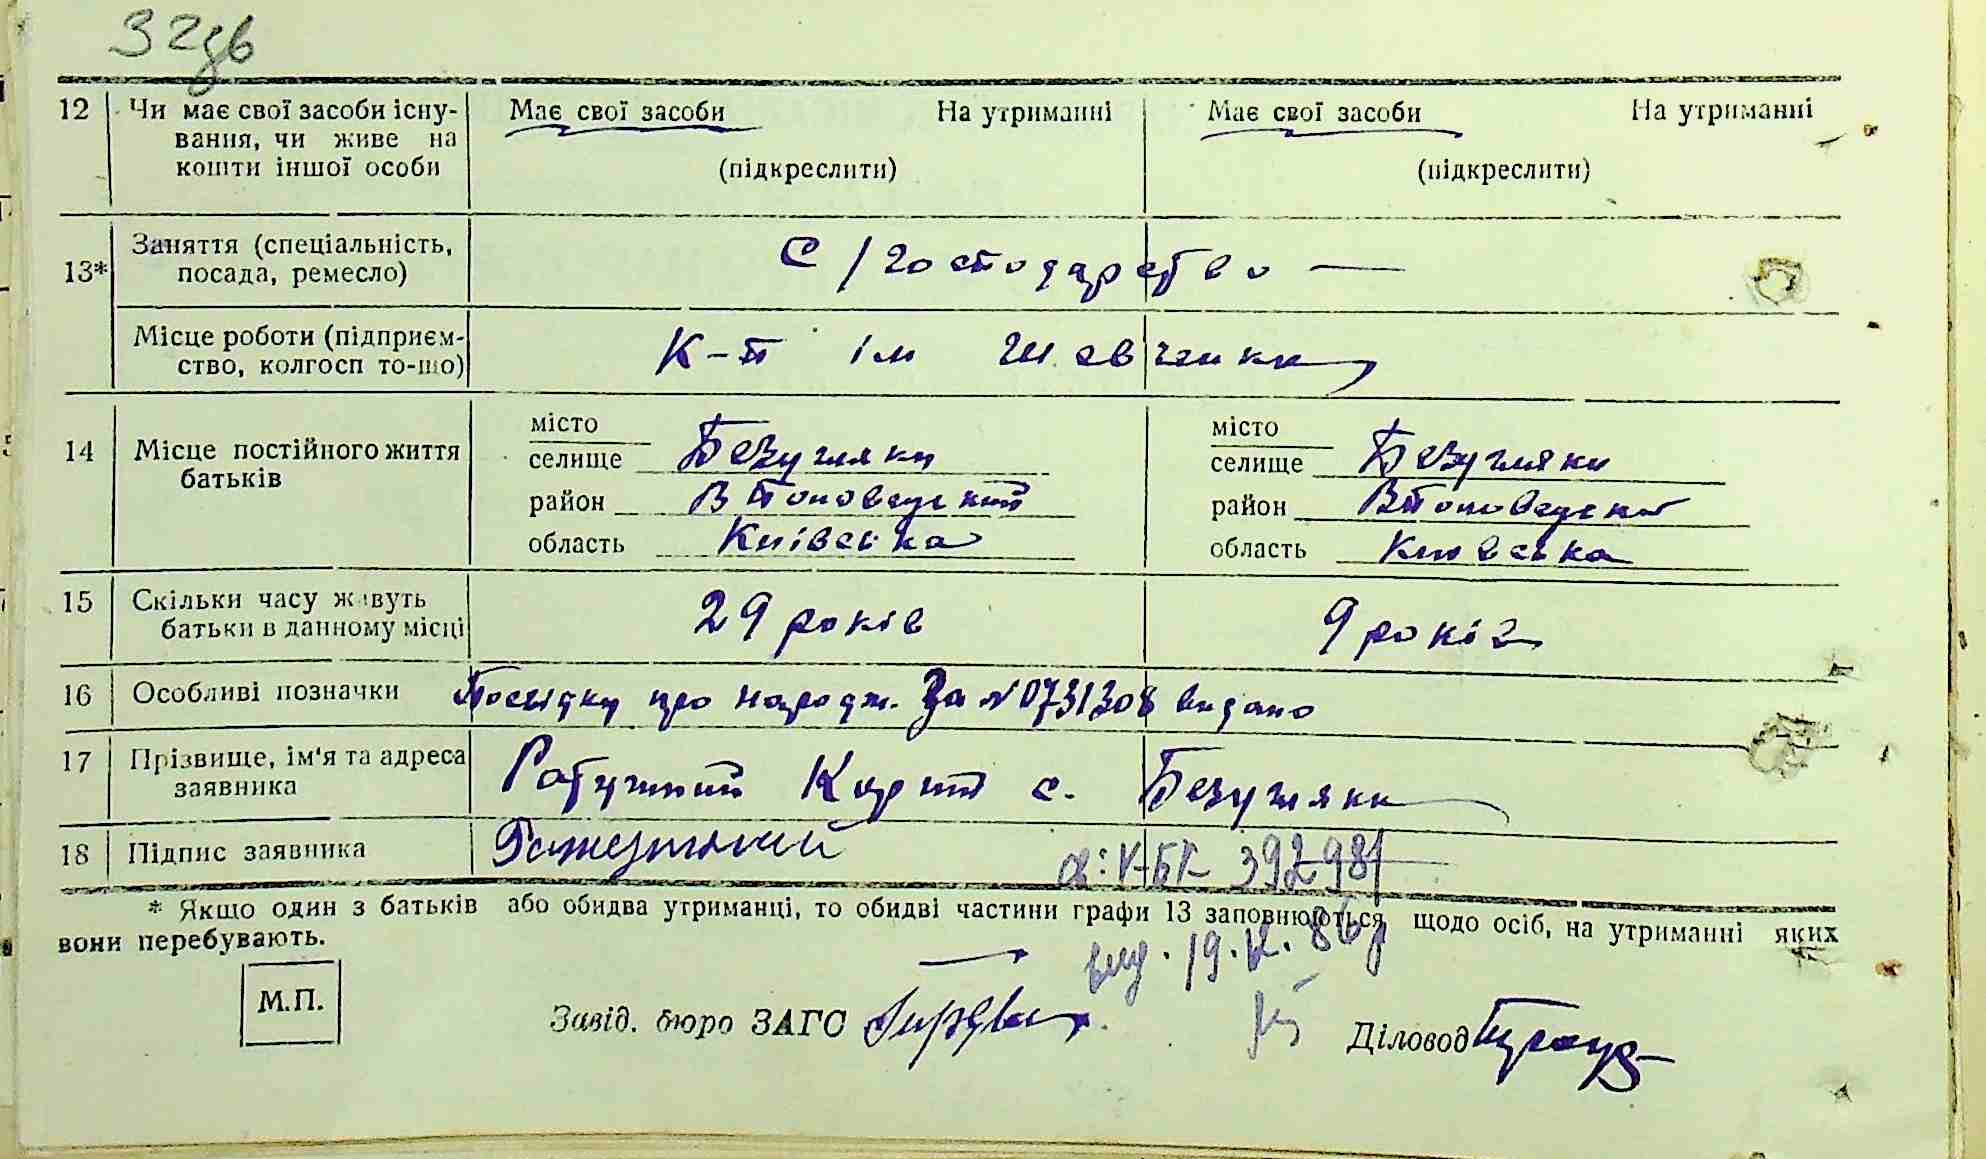 32
12 Чи має свої засоби існу- Має свої засоби На утриманні Має свої засоби На утриманні
вання, чи живе на
кошти іншої особи (підкреслити) (підкреслити)
13* Заняття (спеціальність,
посада, ремесло) С/господарство
Місце роботи (підприєм-
ство, колгосп то-що) К-п ім Шевченка
14 Місце постійного життя
батьків
місто місто
селище Безугляки селище Безугляки
район район
область Київська область Київська
15 Скільки часу живуть
батьки в данному місці 29 років 9 років
16 Особливі позначки Посвідку про народж. За № 0731308 видано
17 Прізвище, ім'я та адреса
заявника Ратушний с. Безугляки
18 Підпис заявника
БК 392981
* Якщо один з батьків або обидва утриманці, то обидві частини графи 13 заповнюються щодо осіб, на утриманні яких
вони перебувають.
М.П.
Завід. бюро ЗАГС Діловод